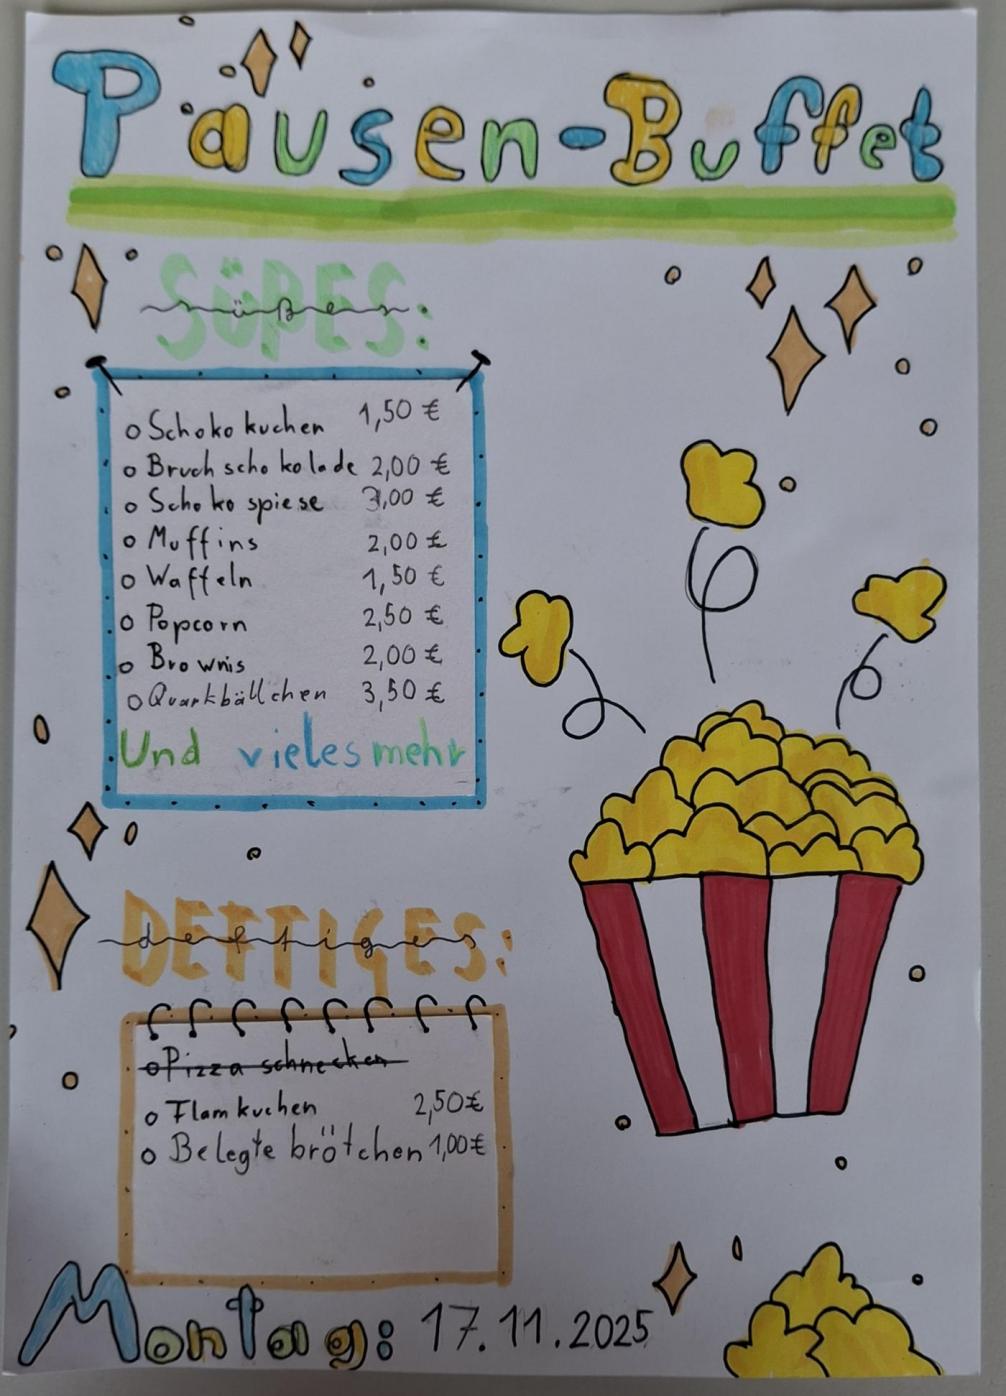 Pausen-Buffet
SÜßES:
süßes
o Schokokuchen 1,50 €
o Bruchschokolade 2,00 €
o Schokospiese 3,00 €
o Muffins 2,00 €
o Waffeln 1,50 €
o Popcorn 2,50 €
o Brownis 2,00 €
o Quarkbällchen 3,50 €
Und vieles mehr
DEFTIGES:
deftiges
o Pizzaschnecken
o Flamkuchen 2,50 €
o Belegte brötchen 1,00 €
Montag: 17.11.2025